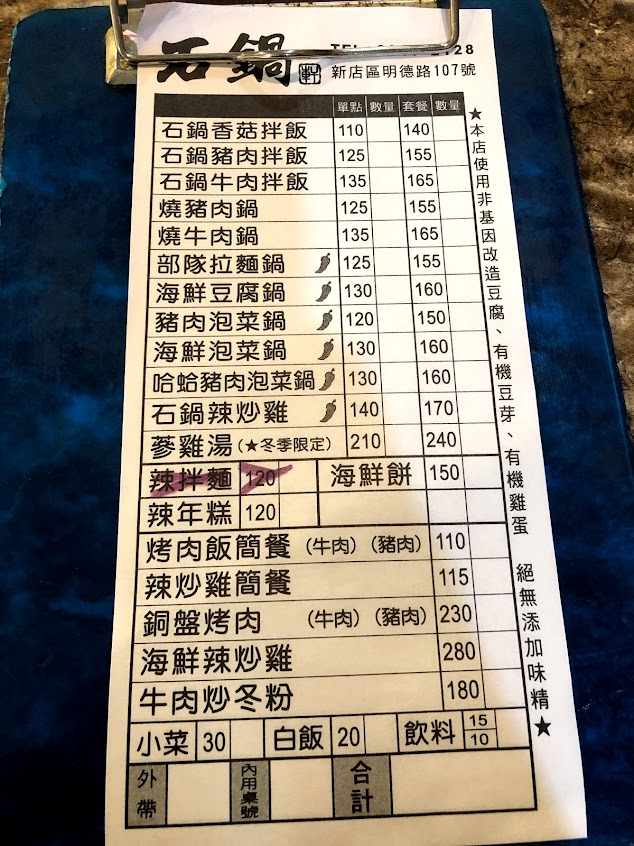 石鍋 軒
新店區明德路107號
單點 數量 套餐 數量
石鍋香菇拌飯 110 140
石鍋豬肉拌飯 125 155
石鍋牛肉拌飯 135 165
燒豬肉鍋 125 155
燒牛肉鍋 135 165
部隊拉麵鍋 125 155
海鮮豆腐鍋 130 160
豬肉泡菜鍋 120 150
海鮮泡菜鍋 130 160
哈蛤豬肉泡菜鍋 130 160
石鍋辣炒雞 140 170
蔘雞湯(★冬季限定) 210 240
辣拌麵 120 海鮮餅 150
辣年糕 120
烤肉飯簡餐 (牛肉) (豬肉) 110
辣炒雞簡餐 115
銅盤烤肉 (牛肉) (豬肉) 230
海鮮辣炒雞 280
牛肉炒冬粉 180
小菜 30 白飯 20 飲料 15 10
外帶 內用桌號 合計
★本店使用非基因改造豆腐、有機豆芽、有機雞蛋 絕無添加味精★